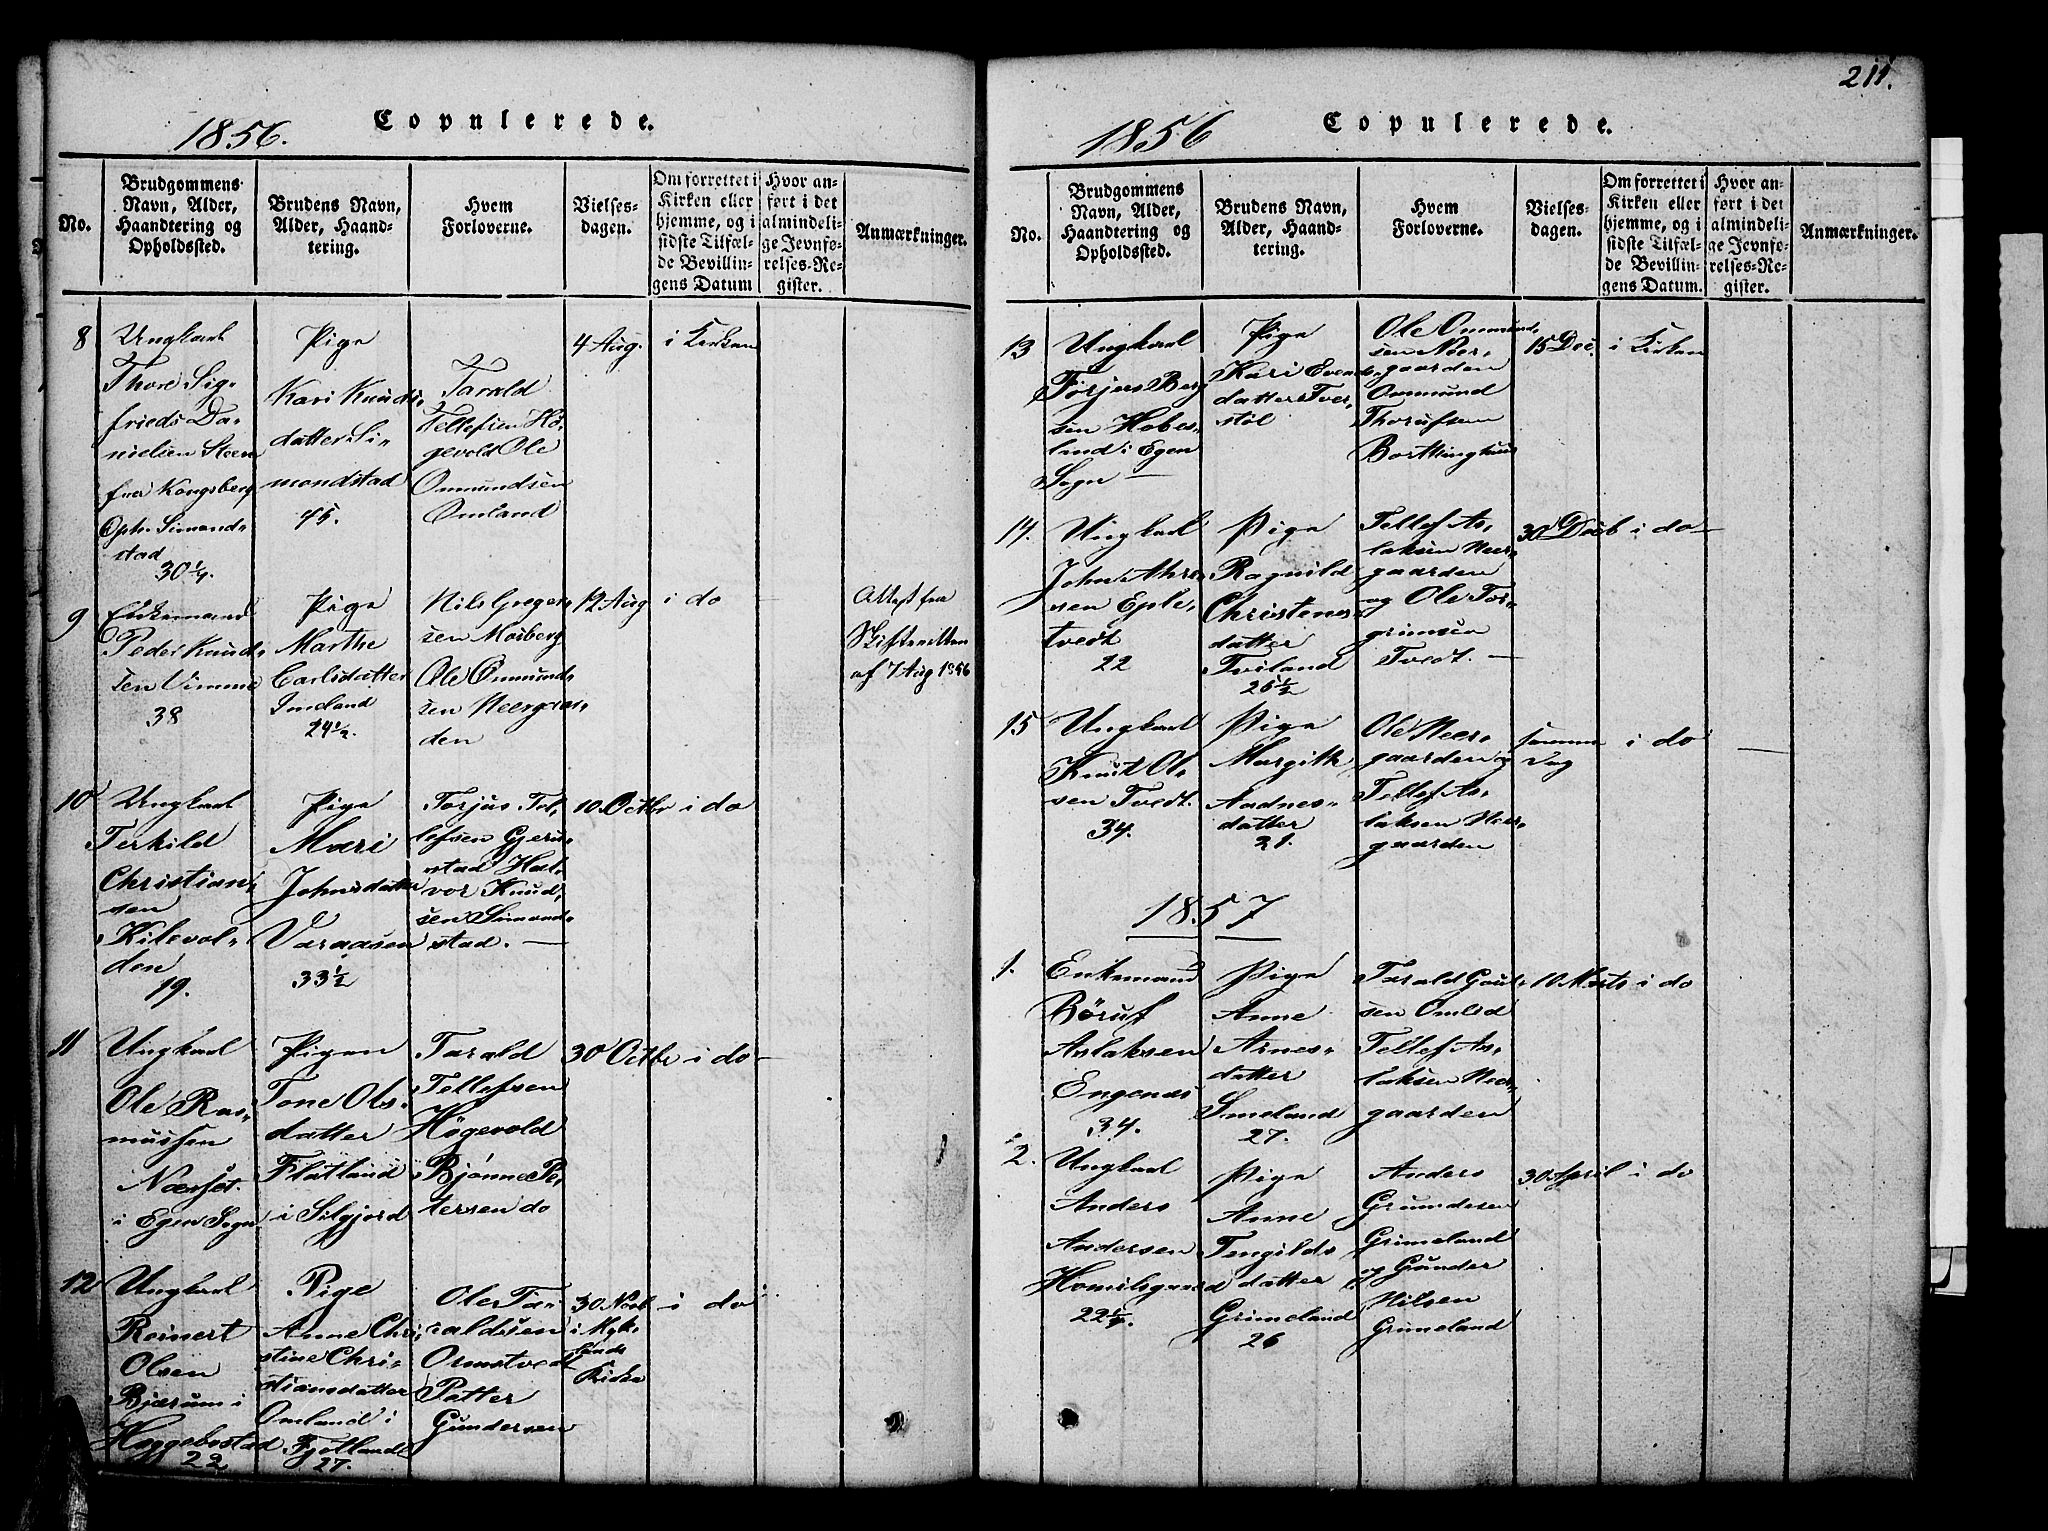 1856.
Copulerede.
No.
Brudgommens
Navn, Alder,
Haandtering og
Opholdssted.
Brudens Navn,
Alder, Haand-
tering.
Hvem
Forloverne.
Vielses-
dagen.
Om forrettet i
Kirken eller
hjemme, og i
sidste Tilfæl-
de Bevillin-
gens Datum
Hvor an-
ført i det
almindeli-
ge Jevnfø-
relses-Re-
gister.
Anmærkninger.
8
Ungkarl
Thore Sig-
frieds Da-
nielsen Steen
fra Kongsberg
Oph. Simond-
stad
30 1/4
Pige
Kari Knuds-
datter Si-
mondstad
45.
Tarald
Tellefsen Hø-
gevold Ole
Ommundsen
Omland
4 Aug.
i Kirken
9
Enkemand
Peder Knud-
sen Vimme
38
Pige
Marthe
Carlsdatter
Imeland
24 1/2.
Nils Greger-
sen Mosberg
Ole Ommund-
sen Neergaar-
den
12 Aug
i do
Attest fra
Skifteretten
af 7 Aug 1856
10
Ungkarl
Terkild
Christian-
sen
Kilevol-
den
19.
Pige
Mari
Johnsdatter
Varaasen
33 1/2
Torjus Tel-
lefsen Gjeru-
stad Hal-
vor Knud-
sen Simond-
stad.
10 Octbr
i do
11
Ungkarl
Ole Ras-
mussen
Næsset
i Egen Sogn
Pigen
Tone Ols-
datter
Flatland
i Silgjord
Tarald
Tellefsen
Høgevold
Bjønne Pe-
tersen do
30 Octbr
i do
12
Ungkarl
Reinert
Olsen
Bjærum i
Hæggebostad
22
Pige
Anne Chri-
stine Chri-
stiansdatter
Omland i
Fjotland
27.
Ole Ta-
raldsen
Ormstvedt
Petter
Gundersen
30 Novb
i Myk-
lands
Kirke
i do
211.
1856
Copulerede.
No.
Brudgommens
Navn, Alder,
Haandtering og
Opholdssted.
Brudens Navn,
Alder, Haand-
tering.
Hvem
Forloverne.
Vielses-
dagen.
Om forrettet i
Kirken eller
hjemme, og i
sidste Tilfæl-
de Bevillin-
gens Datum.
Hvor an-
ført i det
almindeli-
ge Jevnfø-
relses-Re-
gister.
Anmærkninger.
13
Ungkarl
Torjus Berg
sen Hobes-
land i Egen
Sogn
Pige
Kari Evends-
datter Tver-
støl
Ole Ommund-
sen Neer-
gaarden
Ommund
Thorufsen
Bortinghuus
15 Dec.
i Kirken
14.
Ungkarl
John
sen Eple-
tvedt
22
Pige
Ragnild
Christens-
datter
Tveland
25 1/2
Tellef As-
laksen Neer-
gaarden
og Ole Tor-
grimsen
Tvedt.
30 Decb
i do
15
Ungkarl
Knut Ol-
sen Tvedt.
34.
Pige
Margith
Aadnes-
datter
21.
Ole Neer-
gaarden og
Tellef As-
laksen Neer-
gaarden
samme
Dag
i do
1857
1.
Enkemand
Børuf
Aslaksen
Engenæs
34.
Pige
Anne
Arnes-
datter
Smeland
27.
Tarald Gout-
sen Omlid
Tellef As-
laksen Neer-
gaarden
10 Marts
i do
2.
Ungkarl
Anders
Andersen
Homilsgaard
22 1/4.
Pige
Anne
Tengilds
datter
Grimeland
26
Anders
Grundesen
Grimeland
og Gunder
Nilsen
Grimeland
30 April
i do